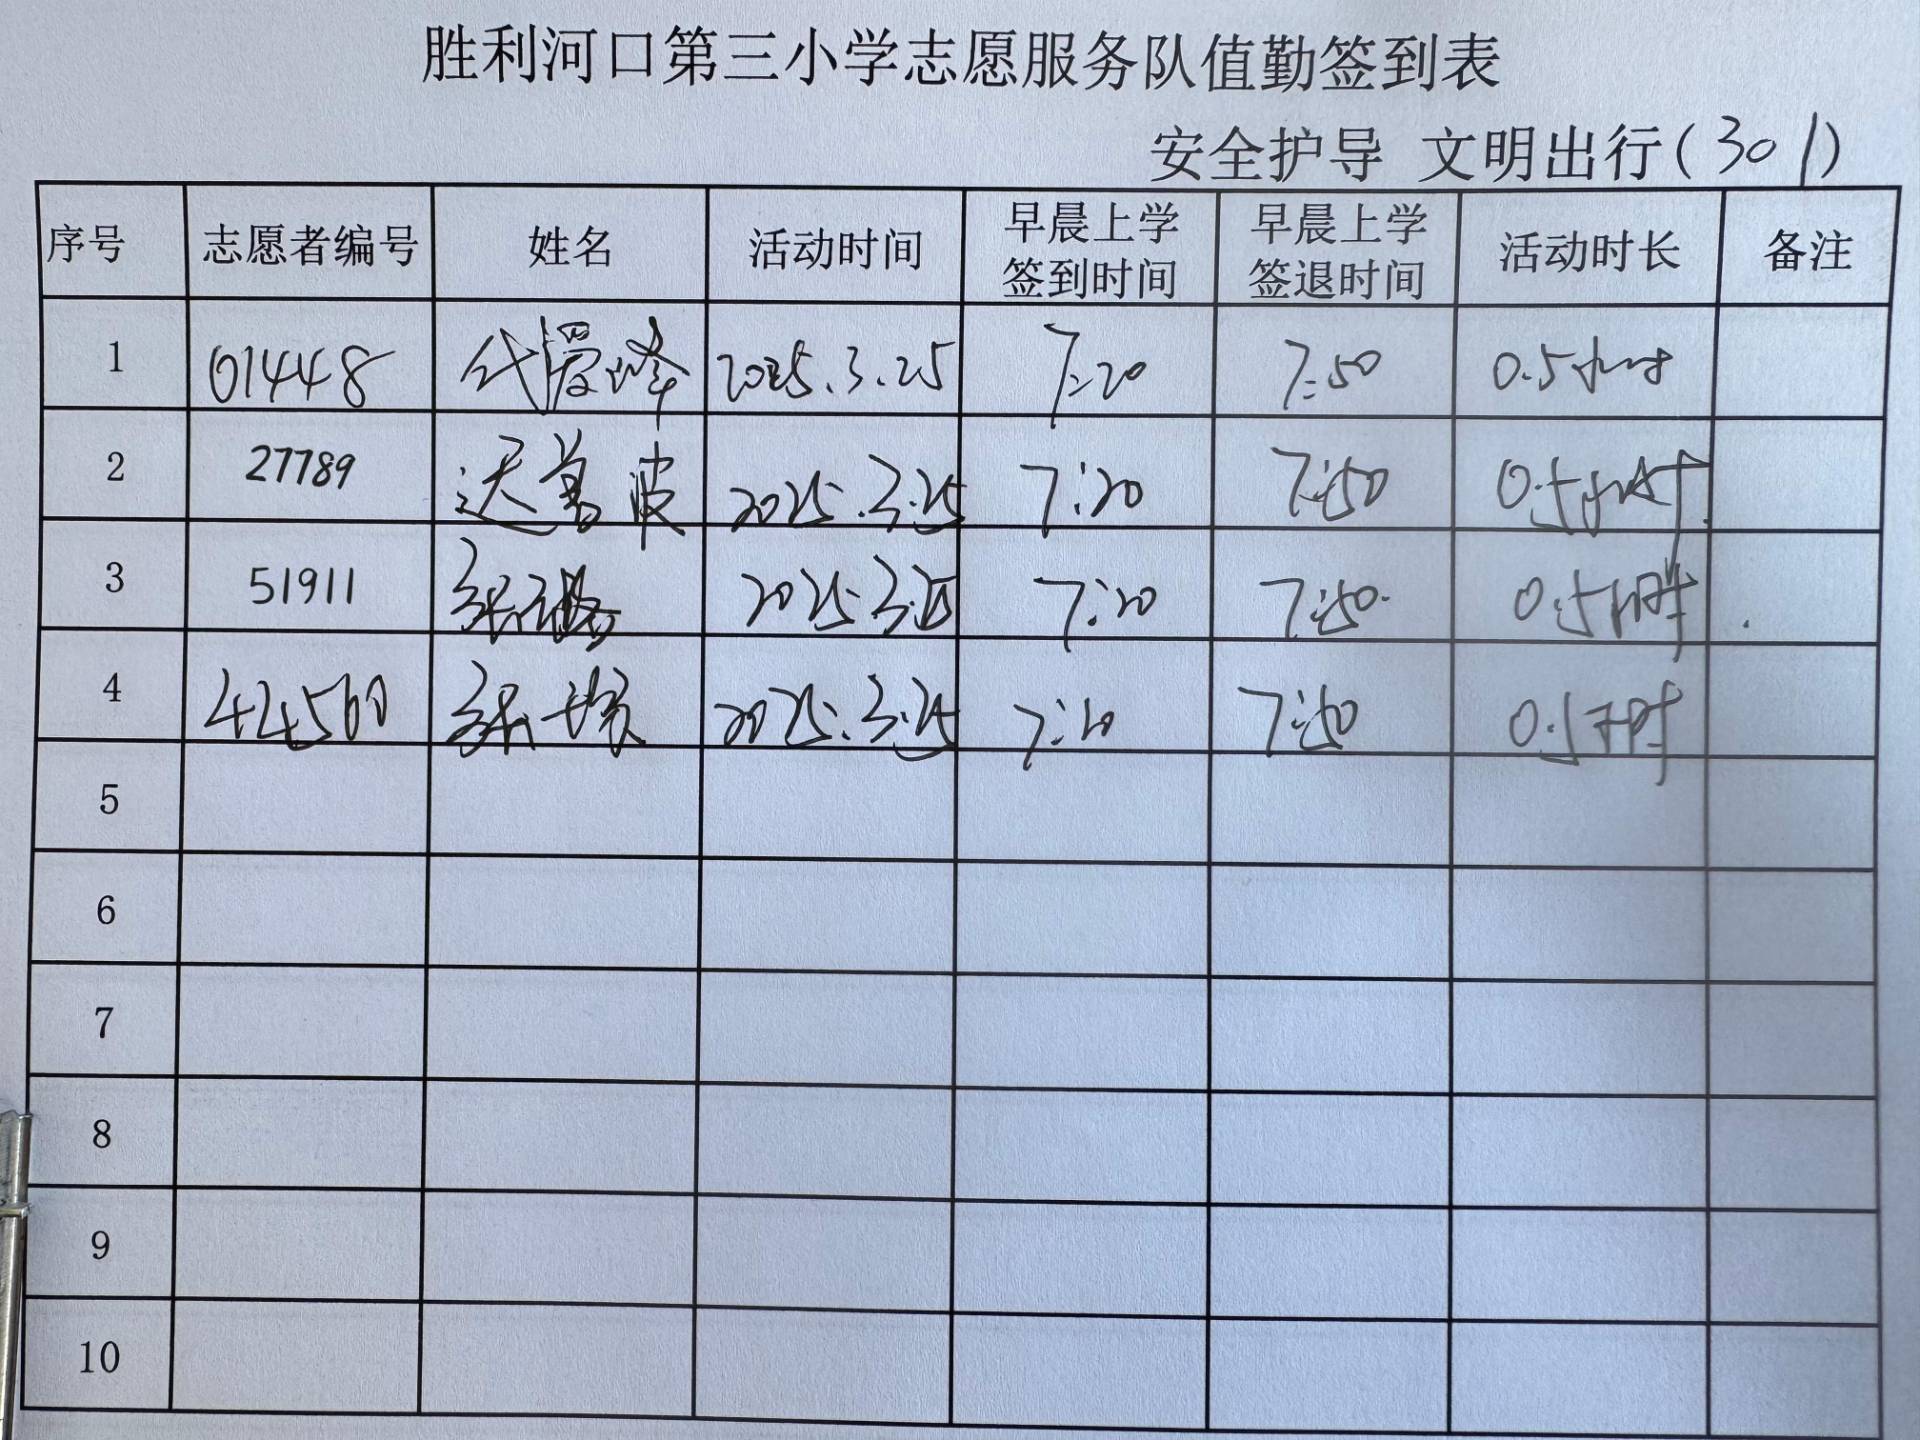 胜利河口第三小学志愿服务队值勤签到表
安全护导 文明出行(301)
序号 志愿者编号 姓名 活动时间 早晨上学签到时间 早晨上学签退时间 活动时长 备注
1 01448 代 峰 2025.3.25 7:20 7:50 0.5小时
2 27789 波 2025.3.25 7:20 7:50 0.5小时
3 51911 张 2025.3.25 7:20 7:50 0.5小时
4 44560 张 2025.3.25 7:20 7:50 0.5小时
5
6
7
8
9
10